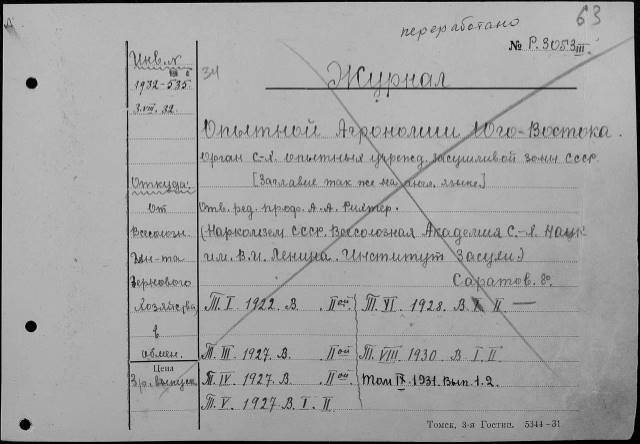 переработано
63
№ Р. 3053 III
Инв. №
1932-535
3.VIII.32.
34
Журнал
Опытной Агрономии Юго-Востока.
Орган С-Х. опытных учрежд. засушливой зоны СССР.
[Заглавие так же на англ. языке.]
Откуда:
От
Всесоюзн.
Ин-та
Зернового
Хозяйства
в
обмен.
Цена
3 р. выпуск
Отв. ред. проф. А. А. Рихтер.
(Наркомзем СССР. Всесоюзная Академия С.-Х. Наук
им. В. И. Ленина. Институт Засухи)
Саратов. 8°.
Т. I 1922. В. IIой.
Т. III. 1927. В. IIой
Т. IV. 1927. В. IIой.
Т. V. 1927 В. I. II.
Т. VI. 1928. В. II —
Т. VIII. 1930 В. I, II.
Том IX. 1931. Вып. 1. 2.
Томск, 3-я Гостип. 5344-31